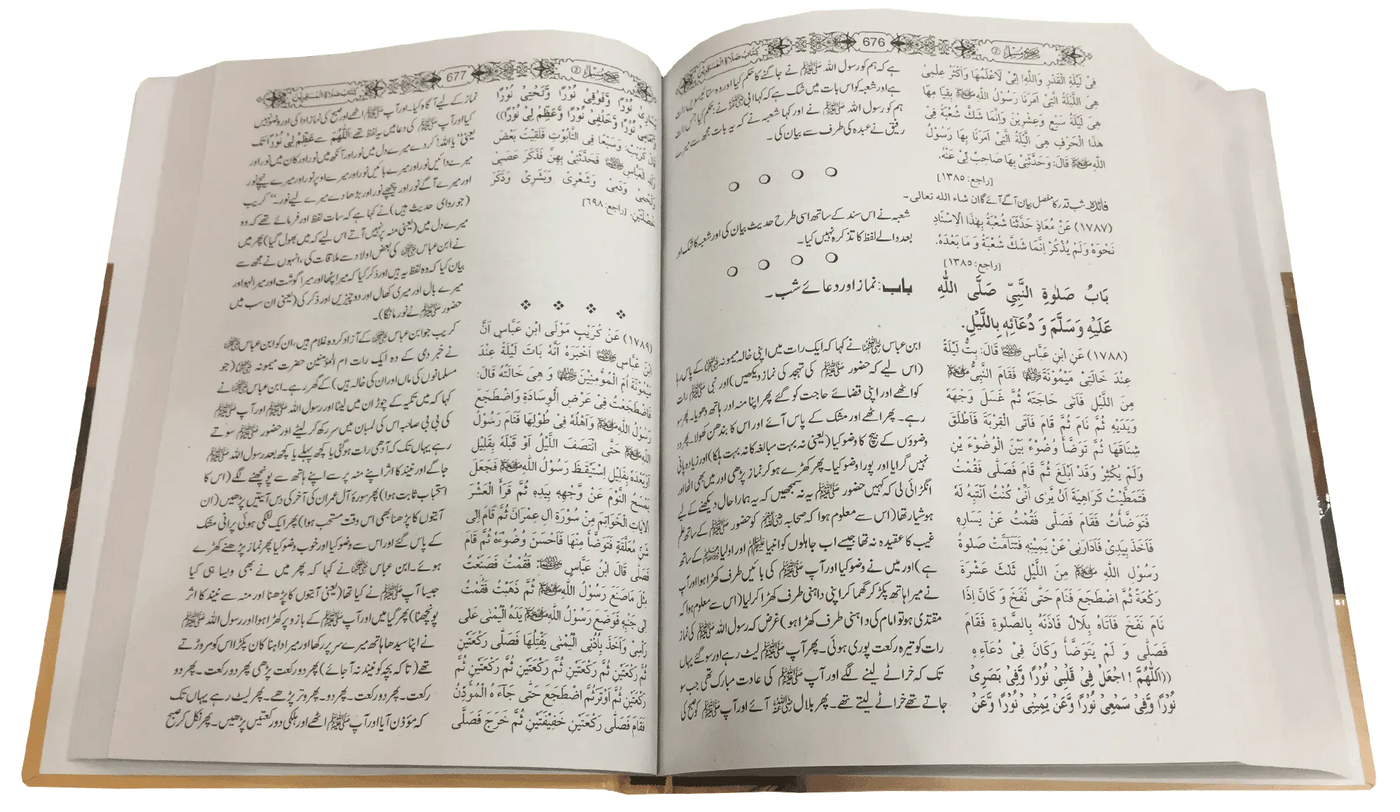 676
كِتَابُ صَلَاةِ الْمُسَافِرِيْنَ
فِیْ لَيْلَةِ الْقَدْرِ وَاللّٰهِ! اِنِّیْ لَاَعْلَمُهَا وَاَكْثَرُ عِلْمِیْ
هِیَ اللَّيْلَةُ الَّتِیْ اَمَرَنَا رَسُوْلُ اللّٰهِ ﷺ بِقِيَا مِهَا
هِیَ لَيْلَةُ سَبْعٍ وَعِشْرِيْنَ وَاِنَّمَا شَكَّ شُعْبَةُ فِیْ
هٰذَا الْحَرْفِ هِیَ اللَّيْلَةُ الَّتِیْ اَمَرَنَا بِهَا رَسُوْلُ
اللّٰهِ ﷺ قَالَ: وَحَدَّثَنِیْ بِهَا صَاحِبٌ لِیْ عَنْهُ.
[راجع: ١٣٨٥]
فائدہ: شب قدر کا مفصل بیان آگے آئے گا ان شاء اللہ تعالی۔
(١٧٨٧) عَنْ مُعَاذٍ حَدَّثَنَا شُعْبَةُ بِهٰذَا الْاِسْنَادِ
نَحْوَهٗ وَلَمْ يَذْكُرْ اِنَّمَا شَكَّ شُعْبَةُ وَ مَا بَعْدَهٗ.
[راجع: ١٣٨٥]
بَابُ صَلٰوةِ النَّبِیِّ صَلَّی اللّٰهِ
عَلَيْهِ وَسَلَّمَ وَ دُعَائِهٖ بِاللَّيْلِ.
(١٧٨٨) عَنِ ابْنِ عَبَّاسٍ قَالَ: بِتُّ لَيْلَةً
عِنْدَ خَالَتِیْ مَيْمُوْنَةَ فَقَامَ النَّبِیُّ ﷺ
مِنَ اللَّيْلِ فَاتٰی حَاجَتَهٗ ثُمَّ غَسَلَ وَجْهَهٗ
وَيَدَيْهِ ثُمَّ نَامَ ثُمَّ قَامَ فَاَتَی الْقِرْبَةَ فَاَطْلَقَ
شِنَاقَهَا ثُمَّ تَوَضَّأَ وُضُوْءً بَيْنَ الْوُضُوْءَ يْنِ
وَلَمْ يُكْثِرْ وَقَدْ اَبْلَغَ ثُمَّ قَامَ فَصَلّٰی فَقُمْتُ
فَتَمَطَّيْتُ كَرَاهِيَةَ اَنْ يَّرٰی اَنِّیْ كُنْتُ اَنْتَبِهُ لَهٗ
فَتَوَضَّأْتُ فَقَامَ فَصَلّٰی فَقُمْتُ عَنْ يَسَارِهٖ
فَاَخَذَ بِيَدِیْ فَاَدَارَنِیْ عَنْ يَمِيْنِهٖ فَتَتَامَّتْ صَلٰوةُ
رَسُوْلِ اللّٰهِ ﷺ مِنَ اللَّيْلِ ثَلٰثَ عَشْرَةَ
رَكْعَةً ثُمَّ اضْطَجَعَ فَنَامَ حَتّٰی نَفَخَ وَ كَانَ اِذَا
نَامَ نَفَخَ فَاَتَاهُ بِلَالٌ فَاٰذَنَهٗ بِالصَّلٰوةِ فَقَامَ
فَصَلّٰی وَ لَمْ يَتَوَضَّأْ وَكَانَ فِیْ دُعَاءِهٖ
((اَللّٰهُمَّ ! اجْعَلْ فِیْ قَلْبِیْ نُوْرًا وَّفِیْ بَصَرِیْ
نُوْرًا وَّفِیْ سَمْعِیْ نُوْرًا وَّعَنْ يَمِيْنِیْ نُوْرًا وَّعَنْ
ہے کہ ہم کو رسول اللہ ﷺ نے جاگنے کا حکم کیا اور وہ
ہے اور شعبہ کو اس بات میں شک ہے کہ کہا ابی نے
ہم کو رسول اللہ ﷺ نے اور کہا شعبہ نے کہ یہ بات مجھ سے
رفیق نے عبدہ کی طرف سے بیان کی۔
شعبہ نے اس سند کے ساتھ اسی طرح حدیث بیان کی اور شعبہ کا شک اور
بعد والے لفظ کا تذکرہ نہیں کیا۔
باب: نماز اور دعائے شب۔
ابن عباس نے کہا کہ ایک رات میں اپنی خالہ میمونہ کے پاس رہا
(اس لیے کہ حضور ﷺ کی تہجد کی نماز دیکھیں) اور نبی ﷺ رات
کو اٹھے اور اپنی قضائے حاجت کو گئے پھر اپنا منہ اور ہاتھ دھویا۔ پھر سو
رہے۔ پھر اٹھے اور مشک کے پاس آئے اور اس کا بندھن کھولا۔ پھر دو
وضوؤں کے بیچ کا وضو کیا (یعنی نہ بہت مبالغہ کا نہ بہت ہلکا) اور زیادہ پانی
نہیں گرایا اور پورا وضو کیا۔ پھر کھڑے ہو کر نماز پڑھی اور میں بھی اٹھا اور
انگڑائی لی کہ کہیں حضور ﷺ یہ نہ سمجھیں کہ یہ ہمارا حال دیکھنے کے لیے
ہوشیار تھا (اس سے معلوم ہوا کہ صحابہ کو حضور ﷺ کے ساتھ علم
غیب کا عقیدہ نہ تھا جیسے اب جاہلوں کو انبیا اور اولیا کے ساتھ
ہے) اور میں نے وضو کیا اور آپ ﷺ کی بائیں طرف کھڑا ہوا اور آپ
نے میرا ہاتھ پکڑ کر گھما کر اپنی داہنی طرف کھڑا کر لیا (اس سے معلوم ہوا کہ
مقتدی ہو تو امام کی داہنی طرف کھڑا ہو) غرض کہ رسول اللہ ﷺ کی نماز
رات کو تیرہ رکعت پوری ہوئی۔ پھر آپ ﷺ لیٹ رہے اور سو گئے یہاں
تک کہ خراٹے لینے لگے اور آپ ﷺ کی عادت مبارک تھی جب سو
جاتے تھے خراٹے لیتے تھے۔ پھر بلال آئے اور آپ ﷺ کو صبح کی
677
كِتَابُ صَلَاةِ الْمُسَافِرِيْنَ
يَسَارِیْ نُوْرًا وَّفَوْقِیْ نُوْرًا وَّتَحْتِیْ نُوْرًا
وَّاَمَامِیْ نُوْرًا وَّخَلْفِیْ نُوْرًا وَّعَظِّمْ لِیْ نُوْرًا))
قَالَ كُرَيْبٌ: وَسَبْعًا فِی التَّابُوْتِ فَلَقِيْتُ بَعْضَ
وَلَدِ الْعَبَّاسِ فَحَدَّثَنِیْ بِهِنَّ فَذَكَرَ عَصَبِیْ
وَلَحْمِیْ وَدَمِیْ وَشَعْرِیْ وَبَشَرِیْ وَذَكَرَ
خَصْلَتَيْنِ. [راجع: ٦٩٨]
(١٧٨٩) عَنْ كُرَيْبٍ مَوْلَی ابْنِ عَبَّاسٍ اَنَّ
ابْنَ عَبَّاسٍ اَخْبَرَهٗ اَنَّهٗ بَاتَ لَيْلَةً عِنْدَ
مَيْمُوْنَةَ اُمِّ الْمُؤْمِنِيْنَ وَ هِیَ خَالَتُهٗ قَالَ:
فَاضْطَجَعْتُ فِیْ عَرْضِ الْوِسَادَةِ وَاضْطَجَعَ
رَسُوْلُ اللّٰهِ ﷺ وَاَهْلُهٗ فِیْ طُوْلِهَا فَنَامَ رَسُوْلُ
اللّٰهِ ﷺ حَتَّی انْتَصَفَ اللَّيْلُ اَوْ قَبْلَهٗ بِقَلِيْلٍ
اَوْ بَعْدَهٗ بِقَلِيْلٍ اسْتَيْقَظَ رَسُوْلُ اللّٰهِ ﷺ فَجَعَلَ
يَمْسَحُ النَّوْمَ عَنْ وَّجْهِهٖ بِيَدِهٖ ثُمَّ قَرَأَ الْعَشْرَ
الْاٰيَاتِ الْخَوَاتِمَ مِنْ سُوْرَةِ اٰلِ عِمْرَانَ ثُمَّ قَامَ اِلٰی
شَنٍّ مُعَلَّقَةٍ فَتَوَضَّأَ مِنْهَا فَاَحْسَنَ وُضُوْءَهٗ ثُمَّ قَامَ
فَصَلّٰی قَالَ ابْنُ عَبَّاسٍ: فَقُمْتُ فَصَنَعْتُ
مِثْلَ مَا صَنَعَ رَسُوْلُ اللّٰهِ ﷺ ثُمَّ ذَهَبْتُ فَقُمْتُ
اِلٰی جَنْبِهٖ فَوَضَعَ رَسُوْلُ اللّٰهِ ﷺ يَدَهُ الْيُمْنٰی عَلٰی
رَأْسِیْ وَاَخَذَ بِاُذُنِی الْيُمْنٰی يَفْتِلُهَا فَصَلّٰی رَكْعَتَيْنِ
ثُمَّ رَكْعَتَيْنِ ثُمَّ رَكْعَتَيْنِ ثُمَّ رَكْعَتَيْنِ ثُمَّ
رَكْعَتَيْنِ ثُمَّ اَوْتَرَ ثُمَّ اضْطَجَعَ حَتّٰی جَآءَ هُ الْمُؤَذِّنُ
فَقَامَ فَصَلّٰی رَكْعَتَيْنِ خَفِيْفَتَيْنِ ثُمَّ خَرَجَ فَصَلَّی
نماز کے لیے آگاہ کیا۔ اور آپ ﷺ اٹھے اور صبح کی نماز ادا کی اور وضو نہیں
کیا اور آپ ﷺ کی دعا میں یہ لفظ تھے اَللّٰهُمَّ سے عَظِّمْ لِیْ نُوْرًا تک
یعنی ”یا اللہ! کر دے میرے دل میں نور اور آنکھ میں نور اور کان میں نور اور
میرے دائیں نور اور میرے بائیں نور اور میرے اوپر نور اور میرے نیچے نور
اور میرے آگے نور اور پیچھے نور اور بڑھا دے میرے لیے نور۔“ کریب
(جو راوی حدیث ہیں) نے کہا ہے کہ سات لفظ اور فرمائے تھے کہ وہ
میرے دل میں (یعنی منہ پر نہیں آتے اس لیے کہ میں بھول گیا) پھر میں
نے ابن عباس کی بعض اولاد سے ملاقات کی، انہوں نے مجھ سے
بیان کیا کہ وہ لفظ یہ ہیں اور ذکر کیا کہ میرا پٹھا اور میرا گوشت اور میرا لہو اور
میرے بال اور میری کھال اور دو چیزیں اور ذکر کی (یعنی ان سب میں
حضور ﷺ نے نور مانگا)۔
کریب جو ابن عباس کے آزاد کردہ غلام ہیں، ان کو ابن عباس
نے خبر دی کہ وہ ایک رات ام المؤمنین حضرت میمونہ (جو
مسلمانوں کی ماں اور ان کی خالہ ہیں) کے گھر رہے۔ ابن عباس نے
کہا کہ میں تکیہ کے چوڑان میں لیٹا اور رسول اللہ ﷺ اور آپ ﷺ
کی بی بی صاحبہ اس کی لمبان میں سر رکھ کر لیٹے اور حضور ﷺ سوتے
رہے یہاں تک کہ آدھی رات ہوگئی یا کچھ پہلے یا کچھ بعد رسول اللہ ﷺ
جاگے اور نیند کا اثر اپنے منہ پر سے اپنے ہاتھ سے پونچھنے لگے (اس کا
استحباب ثابت ہوا) پھر سورۂ آل عمران کی آخر کی دس آیتیں پڑھیں (ان
آیتوں کا پڑھنا بھی اس وقت مستحب ہوا) پھر ایک لٹکی ہوئی پرانی مشک
کے پاس گئے اور اس سے وضو کیا اور خوب وضو کیا پھر نماز پڑھنے کھڑے
ہوئے۔ ابن عباس نے کہا کہ پھر میں نے بھی ویسا ہی کیا
جیسا آپ ﷺ نے کیا تھا (یعنی آیتوں کا پڑھنا اور منہ سے نیند کا اثر
پونچھنا) پھر گیا میں اور آپ ﷺ کے بازو پر کھڑا ہوا اور رسول اللہ ﷺ
نے اپنا سیدھا ہاتھ میرے سر پر رکھا اور میرا داہنا کان پکڑا اس کو مروڑتے
تھے (تاکہ بچہ کو نیند نہ آ جائے) پھر دو رکعت پڑھی پھر دو رکعت۔ پھر دو
رکعت۔ پھر دو رکعت۔ پھر دو۔ پھر دو پھر وتر پڑھے۔ پھر لیٹ رہے یہاں تک
کہ مؤذن آیا اور آپ ﷺ اٹھے اور ہلکی دو رکعتیں پڑھیں۔ پھر نکل کر صبح